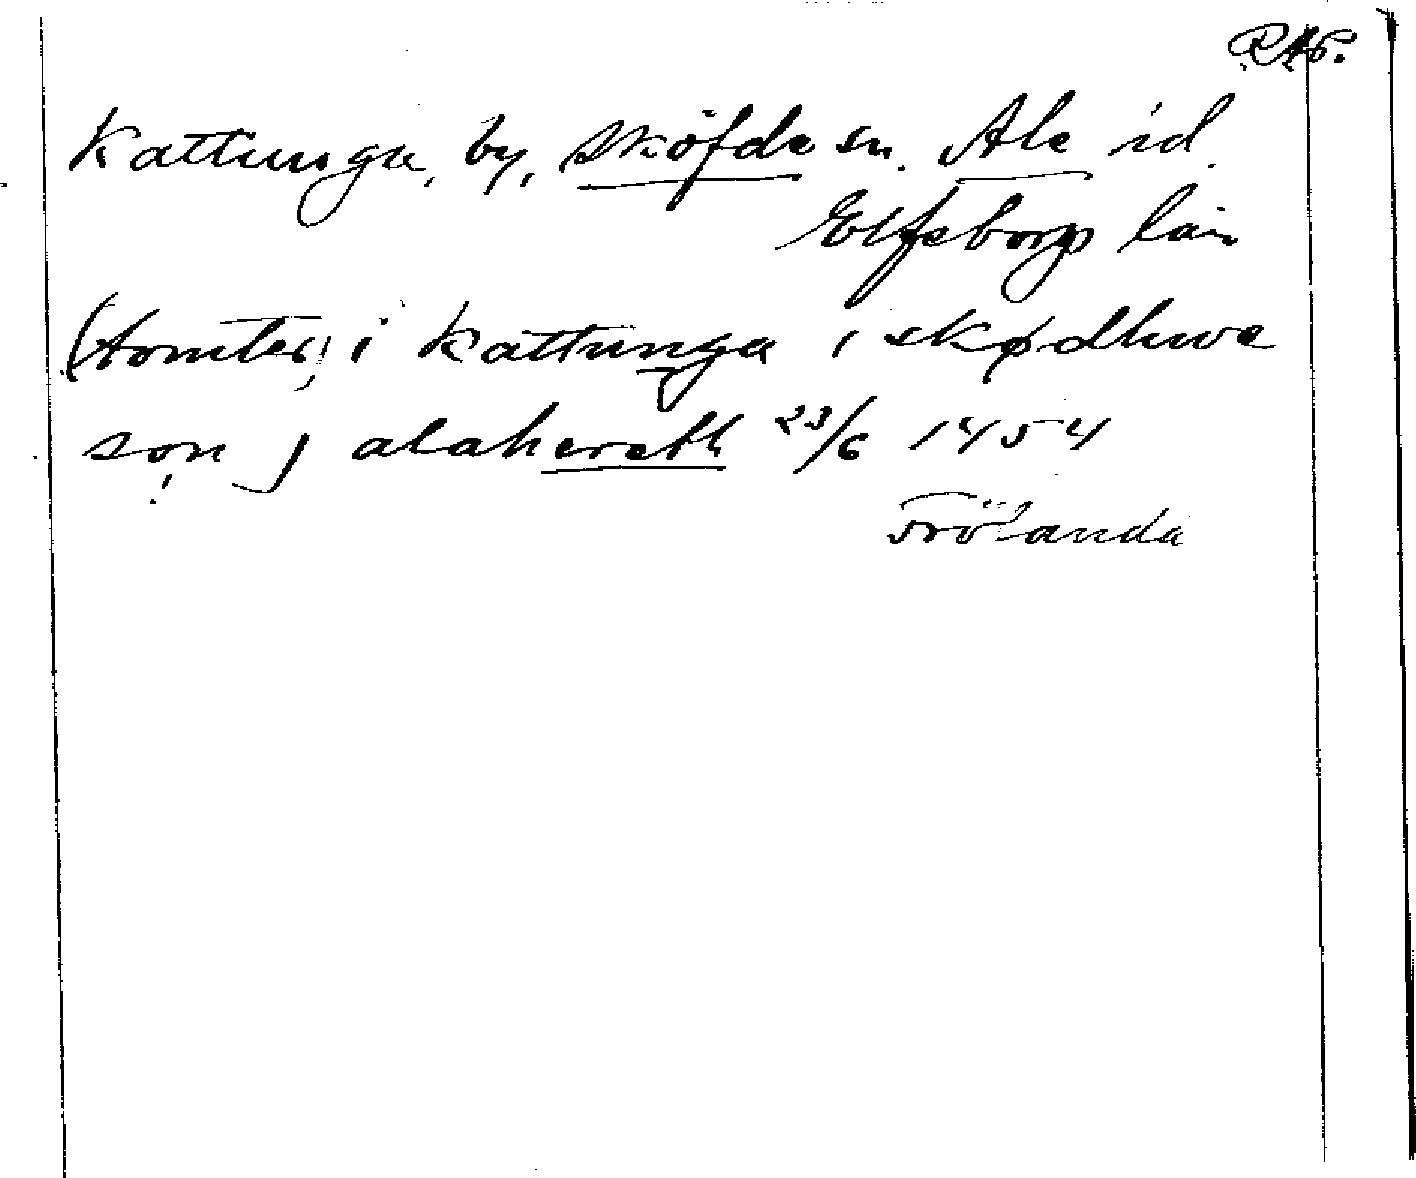 RAp.
Kattunga, by, Sköfde sn. Ale hd.
Elfsborgs län
(tomter) i Kattunga i skødhwe
søn j alahereth 23/6 1454
Frölanda